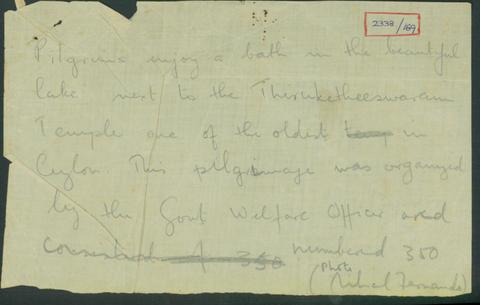 2338/169
Pilgrims enjoy a bath in the beautiful
lake next to the Thiruketheeswaram
Temple one of the oldest temp in
Ceylon. This pilgrimage was organized
by the Govt Welfare Officer and
consisted of 350 numbered 350
photo
(Nihal Fernando)